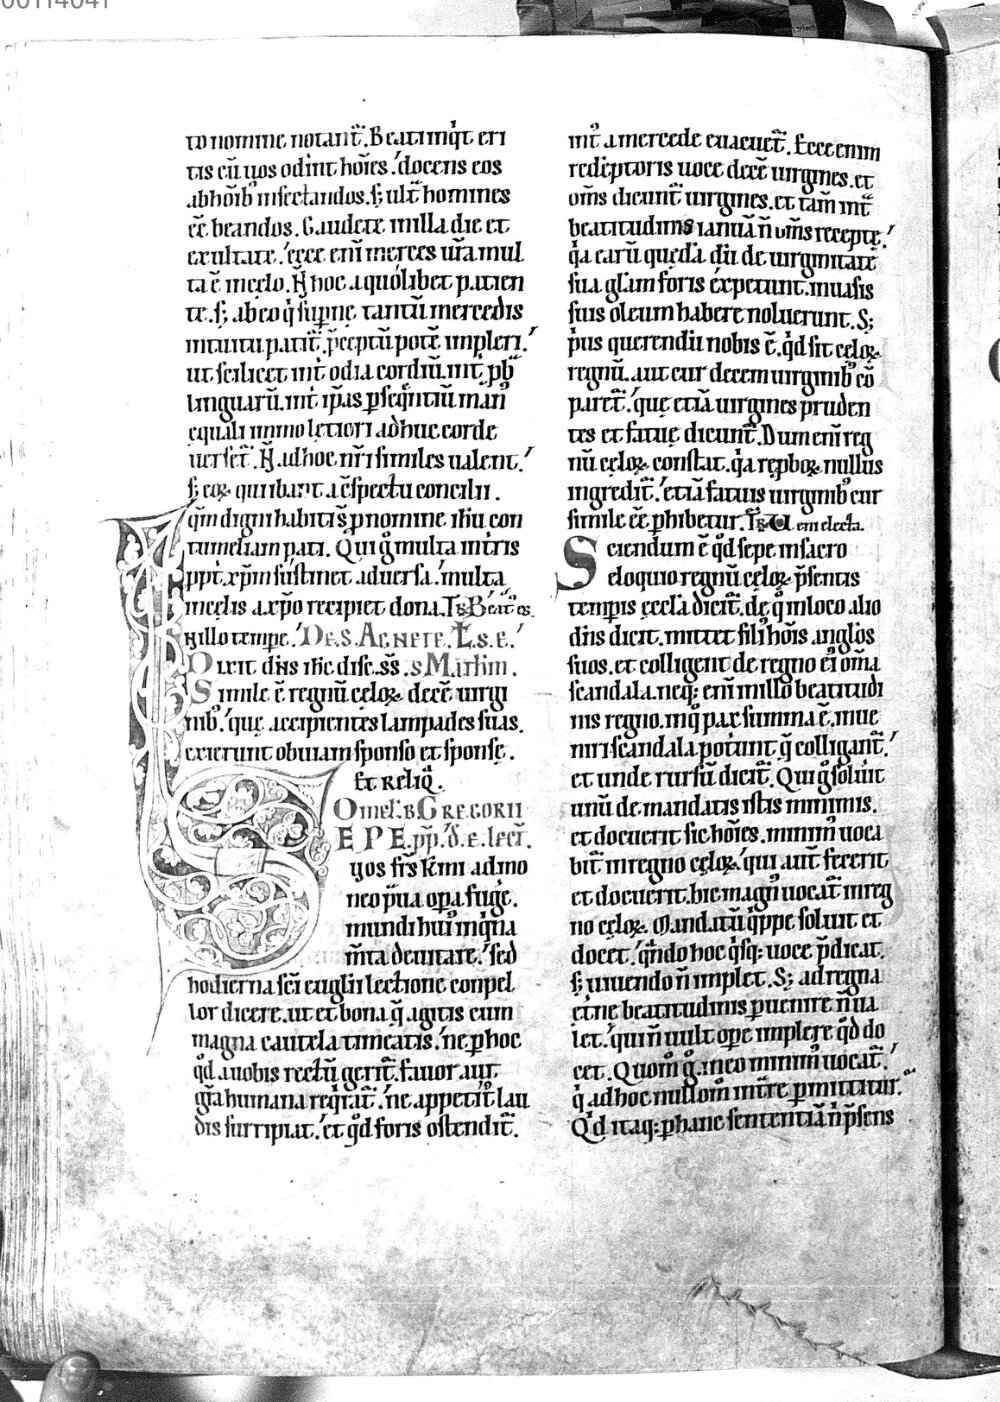 00114041
to nomine notant᷑. Beati inq̇t eri
tis cū uos odint hoīes. docens eos
ab hoīb; insectandos. s; ult᷑ homines
eē beandos. Gaudete in illa die et
exultate. ecce eni merces ur̄a mul
ta ē in celo. H̄ hoc a quolibet patien
te. s; ab eo q̇ supn̄e tantū mercedis
intuitu patit᷑. p̄ceptū potē impleri.
ut scilicet int᷑ odia cordiū. int᷑ pb̄
linguarū. int᷑ ip̄as pseq̄ntiū man᷒
equali immo letiori adhuc corde
uerset᷑. H̄ ad hoc nr̄i similes ualent.
s; eoꝝ qui ibant a c̄spectu concilii.
qm̄ digni habiti s̄ p nomine ihu con
tumeliam pati. Qui g̊ multa in t̄ris
ppt᷑ xp̄m sustinet aduersa. multa
in celis a xp̄o recipiet dona.
In illo tempe. De S. Agnete. L. s. e.
Dixit dn̄s ihc disc. ss. s Mathm.
Simile ē regnū celoꝝ decē uirgi
nib;. que accipientes lampades suas.
exierunt obuiam sponso et sponse.
Et reliq̄.
Omel. B Gregorii
E P E. pp̄. d̄. e. lect̄.
uos fr̄s km̄i admo
neo p̄ua opa fuge.
mundi hui᷒ inq̇na
m̄ta deuitare. sed
hodierna sc̄i euglii lectione conpel
lor dicere. ut et bona q̄ agitis cum
magna cautela timeatis. ne p hoc
qd̄ a uobis rectū gerit᷑. fauor aut
gr̄a humana req̇rat᷑. ne appetit᷒ lau
dis surripiat. et qd̄ foris ostendit᷑.
int᷒ a mercede euacuet᷑. Ecce enim
redēptoris uoce decē uirgines. et
om̄s dicunt᷑ uirgines. et tam̄ int᷑
beatitudinis ianuā n̄ om̄s recepte.
q̇a earū quedā dū de uirginitate
sua gl̄am foris expetunt. in uasis
suis oleum habere noluerunt. S;
ṗus querendū nobis ē. qd̄ sit celoꝝ
regnū. aut cur decem uirginib; cō
paret᷑. que etiā uirgines pruden
tes et fatue dicunt᷑. Dum eni reg
nū celoꝝ constat. q̇a repboꝝ nullus
ingredit᷑. etiā fatuis uirginib; cur
simile eē phibetur. Uem electa.
Sciendum ē qd̄ sepe in sacro
eloquio regnū celoꝝ p̄sentis
tempis eccl̄a dicit᷑. de q̊ in loco alio
dn̄s dicit. mittet fili᷒ hoīs anglos
suos. et colligent de regno ei᷒ om̄a
scandala. neq; eni in illo beatitudi
nis regno. in q̊ pax summa ē. inue
niri scandala potunt q̄ colligant᷑.
et unde rursū dicit᷑. Qui g̊ soluit
unū de mandatis istis minimis.
et docuerit sic hoīes. minim᷒ uoca
bit᷑ in regno celoꝝ. qui aut̄ fecerit
et docuerit. hic magn᷒ uocat᷑ in reg
no celoꝝ. Mandatū q̇ppe soluit et
docet. qn̄do hoc q̇sq; uoce p̄dicat.
s; uiuendo n̄ implet. S; ad regna
etne beatitudinis puenire n̄ ua
let. qui n̄ uult ope implere qd̄ do
cet. Quom᷒ g̊ in eo minim᷒ uocat᷑.
q̇ ad hoc nullom᷒ int̄re pmittitur.
Qd̄ itaq; p hanc sententiā n̄ p̄sens